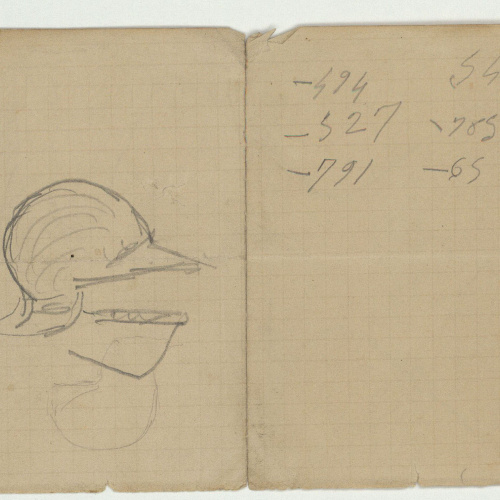 -594 54
-527 -785
-791 -65